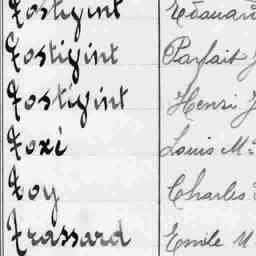 Fostiyint Edouard
Fostiyint Parfait J
Fostiyint Henri J
Foxi Louis M
Foy Charles
Frassard Emile M